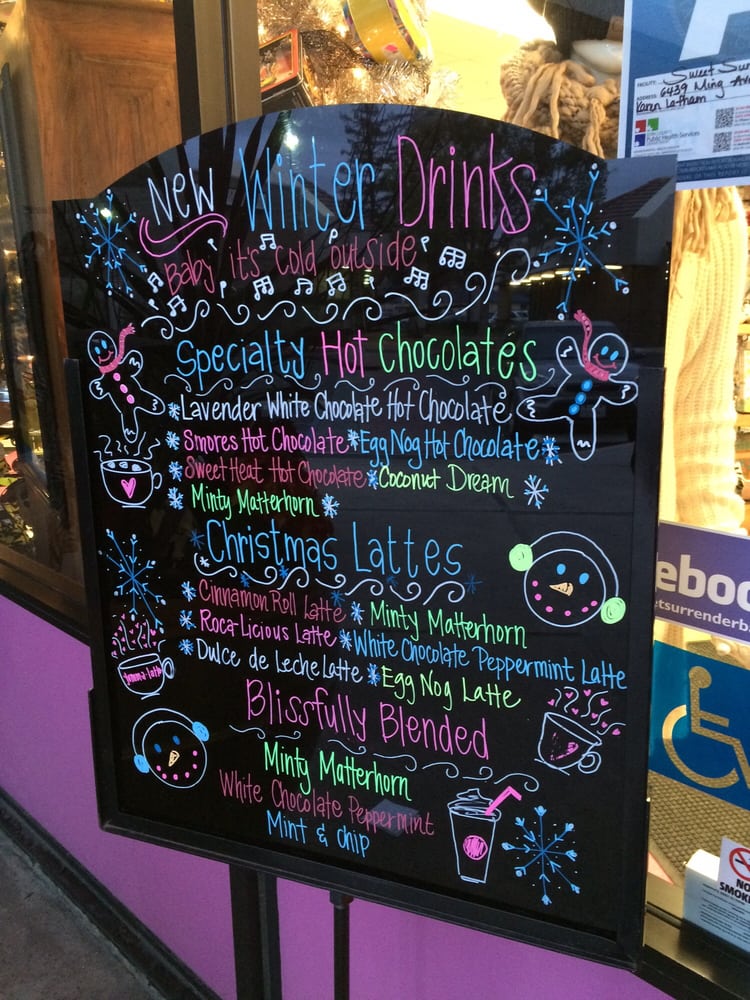 New Winter Drinks
Baby it's cold outside
Specialty Hot Chocolates
*Lavender White Chocolate Hot Chocolate
*Smores Hot Chocolate *Egg Nog Hot Chocolate*
*Sweet Heat Hot Chocolate *Coconut Dream
*Minty Matterhorn
Christmas Lattes
*Cinnamon Roll Latte *Minty Matterhorn
*Roca-Licious Latte *White Chocolate Peppermint Latte
*Dulce de Leche Latte *Egg Nog Latte
Blissfully Blended
Minty Matterhorn
White Chocolate Peppermint
Mint & chip
A
FACILITY: Sweet Sur
ADDRESS: 6439 Ming Ave
Karen Latham
Public Health Services
eboo
etsurrenderb
NO
SMOK